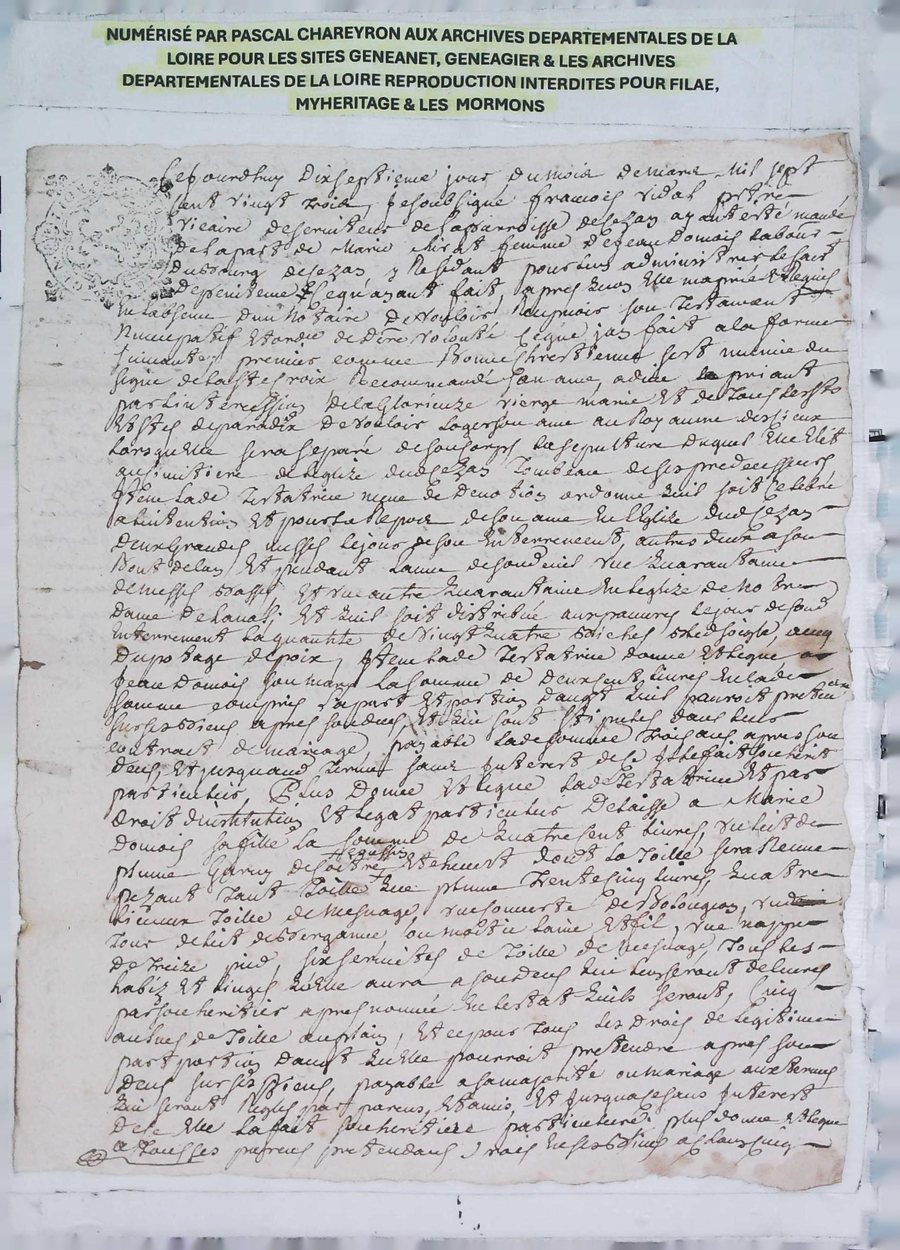 NUMÉRISÉ PAR PASCAL CHAREYRON AUX ARCHIVES DEPARTEMENTALES DE LA
LOIRE POUR LES SITES GENEANET, GENEAGIER & LES ARCHIVES
DEPARTEMENTALES DE LA LOIRE REPRODUCTION INTERDITES POUR FILAE,
MYHERITAGE & LES MORMONS
Cejourdhuy Dixseptieme jour du mois de mars Mil sept
cent vingt trois, Je soubsigné francois vidal prtre
vicaire deserviteur de la parroisse de Sezas ayant esté mandé
de la part de Marie femme de Jean Domais labour-
du bourg de Sezas y Residant pour luy administrer le sact
de penitence Cequayant fait, apres quoy Elle ma priée &
En labsence dun Notaire de vouloir Recepvoir son Testament
Nuncupatif Et ordre de Dre volonté Ceque jay fait a la forme
suivante, premier comme Bonne chrestienne sest munie du
signe de la ste croix Recommandé son ame a dieu le priant
par lintercession de la Glorieuze vierge marie Et de Tous les sts
Et stes de paradix de vouloir loger son ame au Royaume des cieux
Lorsquelle sera separé de son corps La sepulture duquel Elle Elit
au simitiere de leglize dud Sezas Tombeau de ses predecesseurs,
Item lade Testatrice meue de devotion ordonne quil soit Celebré
a lintention Et pour le Repos de son ame En leglize dud Sezas
deux Grandes messes le jour de son Enterrement, autres deux a son
Bout de lan Et pendant lanne de son deuil une quarantaine
de messes basses Et une autre quarantaine En leglize de Notre
Dame de Et quil soit distribué aux pauvres le jour de sond
Enterrement la quantité de vingt quatre bled soigle, avec
du potage de poix, Item lade Testatrice donne Et legue a
Jean Domais son mary la somme de deux cent livres En lade
somme compris sa part Et portion daugt quil pourroit pretendre
sur ses biens apres son deces Et qui sont stipulés dans leur
contrat de mariage, payable lade somme Trois ans apres son
deces, Et jusquaud Terme sans Interest de ce Il le fait son heritier
particulier, Plus Donne Et legue lade Testatrice Et par
droit dinstitution Et legat particulier Delaisse a Marie
domais sa fille la somme de quatre cent livres, un lict de
plume Garny de coitre coussin Et dont la Toille sera Remne
pezant Tant Toille que plume Trente cinq livres, quatre
linceux Toille de mesnage, une couverte de une
Tour de lict de bergamme ou moitie laine Et fil, une nappe
de Treize pied, six serviettes de Toille de mesnage, Tous les
habiz Et linges quelle aura a son deces qui luy seront delivrés
par son heritier apres nommée En lestat quils seront, Cinq
aulnes de Toille au plain, Et ce pour Tous les Drois de legitime
part portion daugt quelle pourroit pretendre apres son
deces sur ses biens, payable a sa majorité ou mariage aux termes
qui seront Reglés par parens, Et amis, Et jusqua se sans Interest
de ce Elle la fait son heritiere particuliere plus donne Et legue
a tous ses parens pretendans Drois En ses biens a chascun cinq